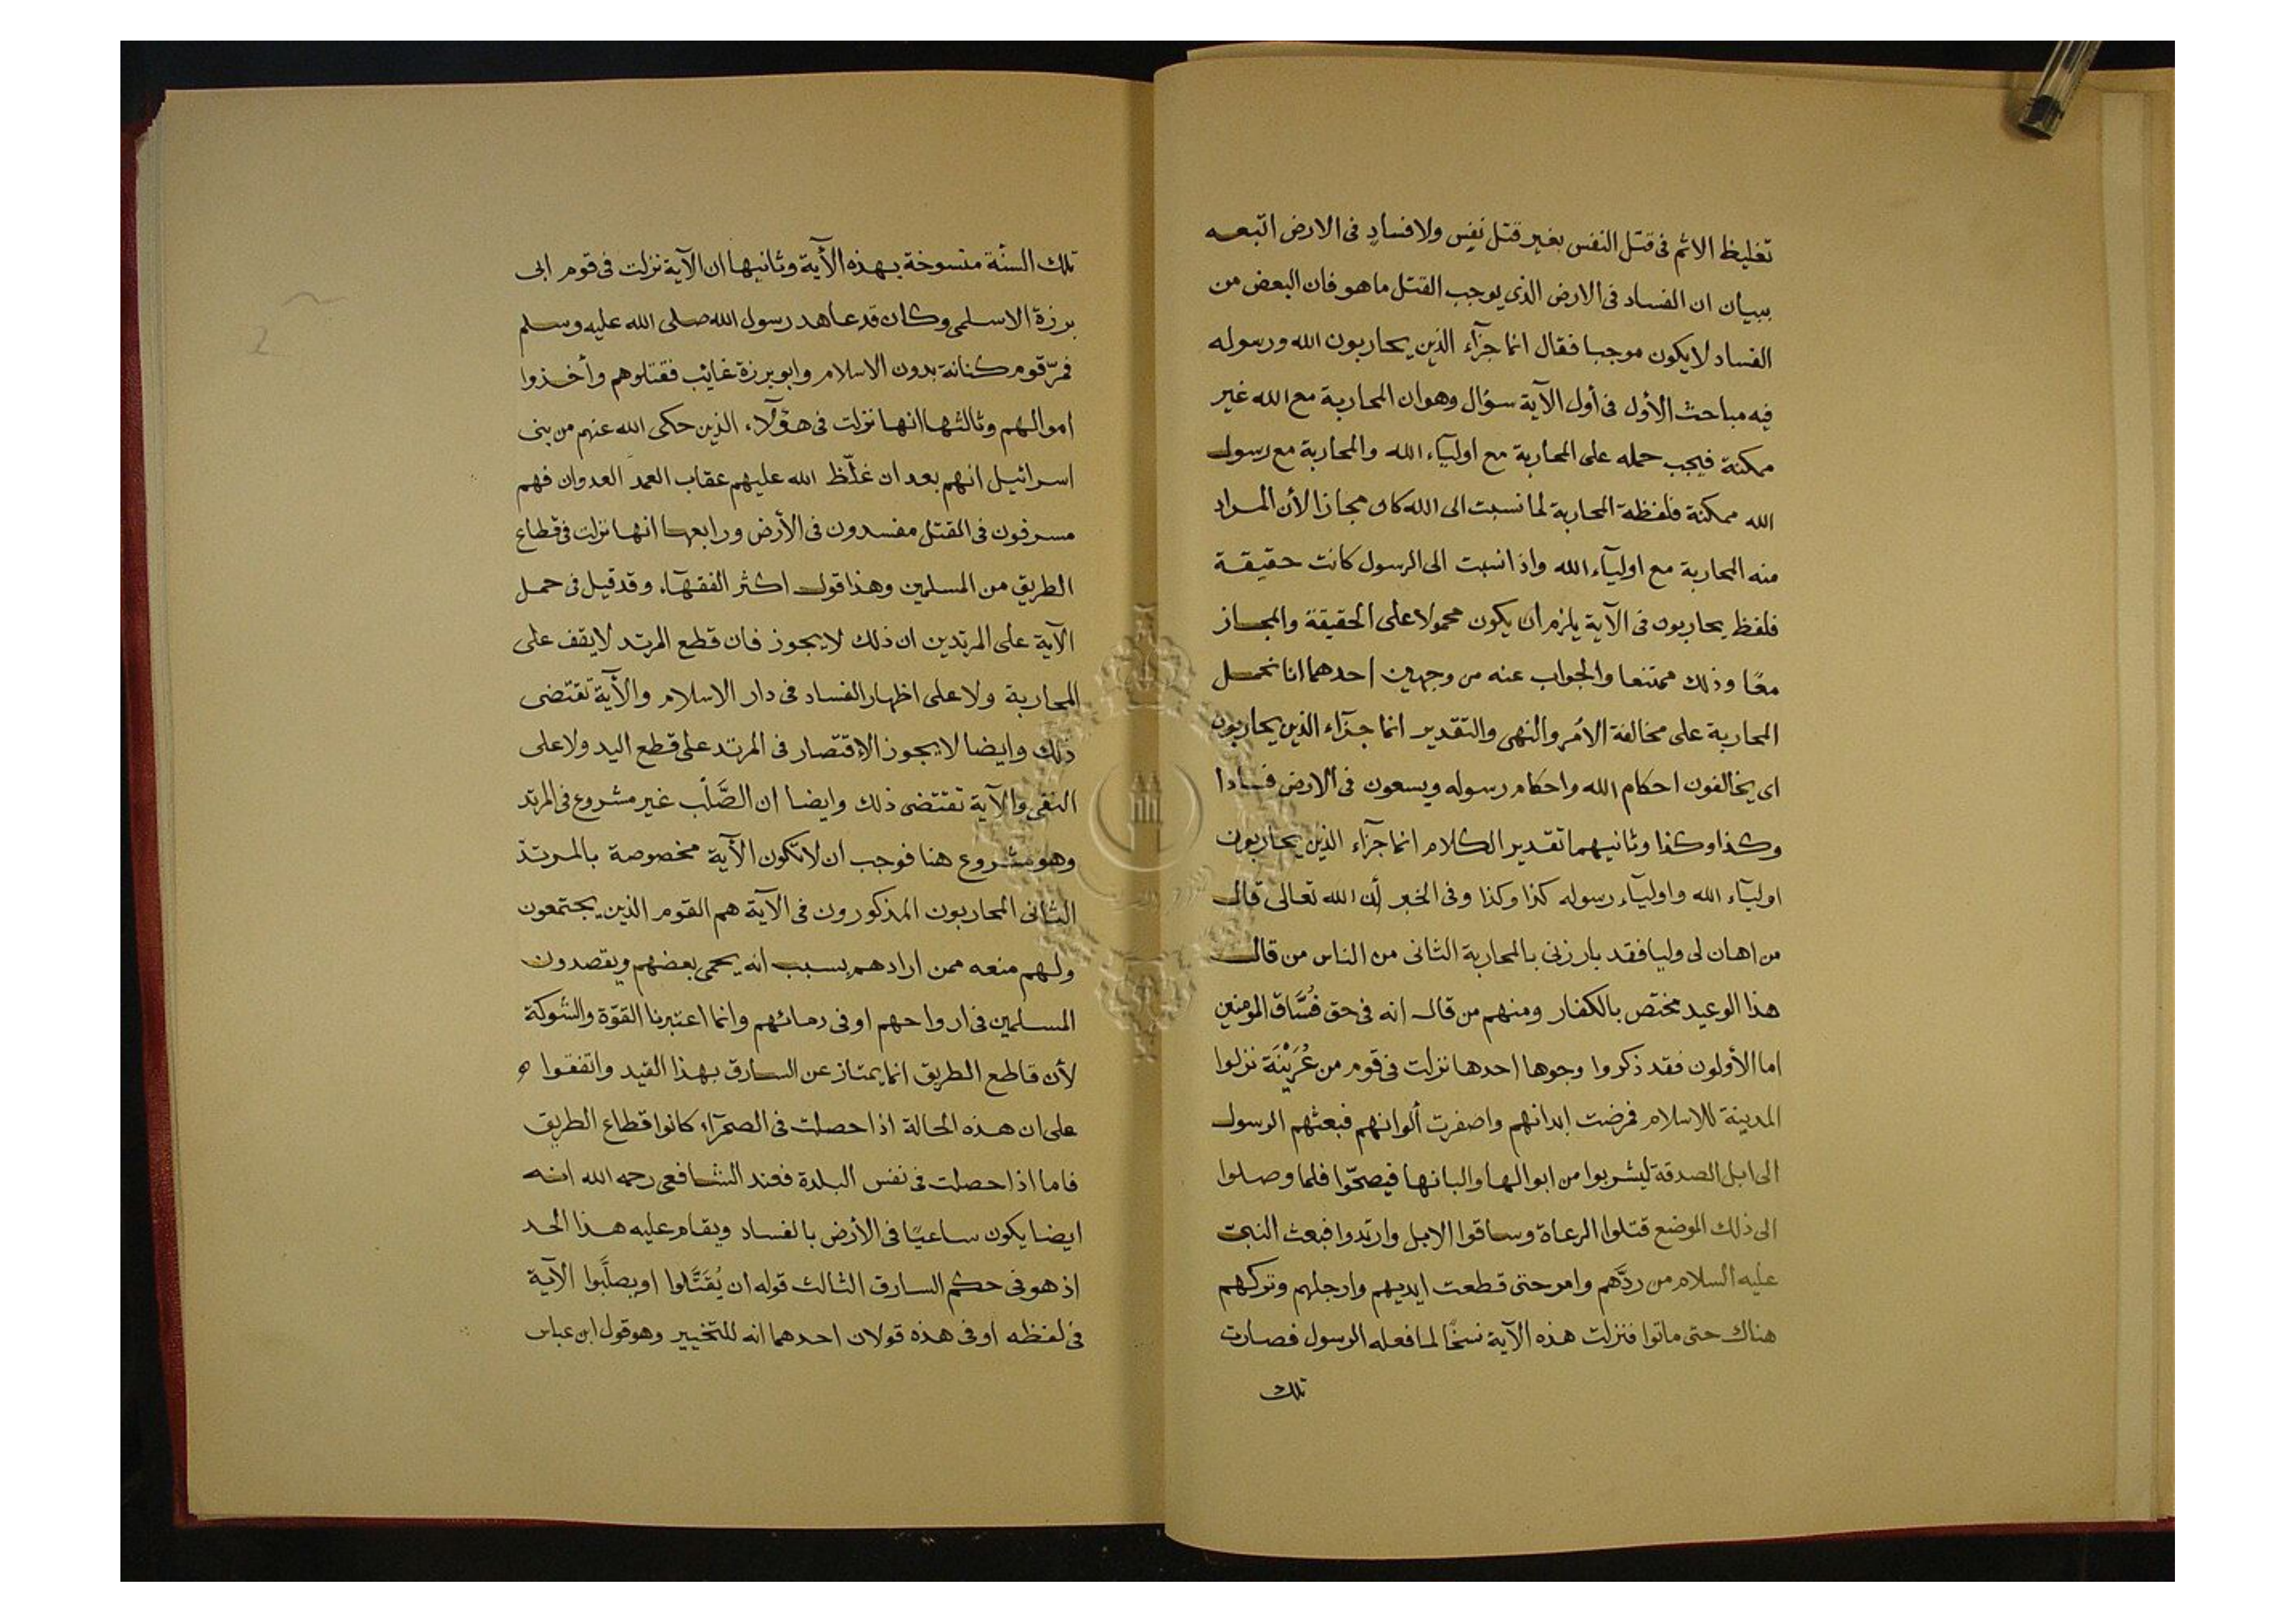 تغليظ الاثم فى قتل النفس بغير قتل نفس ولا فساد فى الارض اتبعه
ببيان ان الفساد فى الارض الذى يوجب القتل ما هو فان البعض من
الفساد لا يكون موجبا فقال انما جزآء الذين يحاربون الله ورسوله
فيه مباحث الأول فى أول الآية سؤال وهو ان المحاربة مع الله غير
ممكنة فيجب حمله على المحاربة مع اوليآء الله والمحاربة مع رسول
الله ممكنة فلفظة المحاربة لما نسبت الى الله كان مجازا لأن المراد
منه المحاربة مع اوليآء الله واذا نسبت الى الرسول كانت حقيقة
فلفظ يحاربون فى الآية يلزم ان يكون محمولا على الحقيقة والمجاز
معًا وذلك ممتنعا والجواب عنه من وجهين احدهما انا نحمل
المحاربة على مخالفة الامر والنهى والتقدير انما جزآء الذين يحاربون
اى يخالفون احكام الله واحكام رسوله ويسعون فى الارض فسادا
وكذا وكذا وثانيهما تقدير الكلام انما جزآء الذين يحاربون
اوليآء الله واوليآء رسوله كذا وكذا وفى الخبر أن الله تعالى قال
من اهان لى وليا فقد بارزنى بالمحاربة الثانى من الناس من قال
هذا الوعيد مختص بالكفار ومنهم من قال انه فى حق فُسَّاق المؤمنين
اما الأولون فقد ذكروا وجوها احدها نزلت فى قوم من عُرَيْنَة نزلوا
المدينة للاسلام فمرضت ابدانهم واصفرت ألوانهم فبعثهم الرسول
الى ابل الصدقة ليشربوا من ابوالها والبانها فيصحّوا فلما وصلوا
الى ذلك الموضع قتلوا الرعاة وساقوا الابل وارتدوا فبعث النبى
عليه السلام من ردَّهم وامر حتى قطعت ايديهم وارجلهم وتركهم
هناك حتى ماتوا فنزلت هذه الآية نسخًا لما فعله الرسول فصارت
تلك
تلك السنّة منسوخة بهذه الآية وثانيها ان الآية نزلت فى قوم ابى
برزة الاسلمى وكان قد عاهد رسول الله صلى الله عليه وسلم
فمرّ قوم كنانة بدون الاسلام وابو برزة غايب فقتلوهم وأخذوا
اموالهم وثالثها انها نزلت فى هؤلآء الذين حكى الله عنهم من بنى
اسرائيل انهم بعد ان غلّظ الله عليهم عقاب العمد العدوان فهم
مسرفون فى القتل مفسدون فى الأرض ورابعها انها نزلت فى قطاع
الطريق من المسلمين وهذا قول اكثر الفقهآء وقد قيل فى حمل
الآية على المرتدين ان ذلك لا يجوز فان قطع المرتد لا يقف على
المحاربة ولا على اظهار الفساد فى دار الاسلام والآية تقتضى
ذلك وايضا لا يجوز الاقتصار فى المرتد على قطع اليد ولا على
النفى والآية تقتضى ذلك وايضا ان الصَّلْب غير مشروع فى المرتد
وهو مشروع هنا فوجب ان لا تكون الآية مخصوصة بالمرتدّ
الثانى المحاربون المذكورون فى الآية هم القوم الذين يجتمعون
ولهم منعه ممن ارادهم بسبب انه يحمى بعضهم ويقصدون
المسلمين فى ارواحهم او فى دمائهم وانما اعتبرنا القوّة والشوكة
لأن قاطع الطريق انما يمتاز عن السارق بهذا القيد واتفقوا
على ان هذه الحالة اذا حصلت فى الصحرآء كانوا قطاع الطريق
فاما اذا حصلت فى نفس البلدة فعند الشافعى رحمه الله انه
ايضا يكون ساعيًا فى الأرض بالفساد ويقام عليه هذا الحد
اذ هو فى حكم السارق الثالث قوله ان يُقَتَّلوا او يصلَّبوا الآية
فى لفظه او فى هذه قولان احدهما انه للتخيير وهو قول ابن عباس